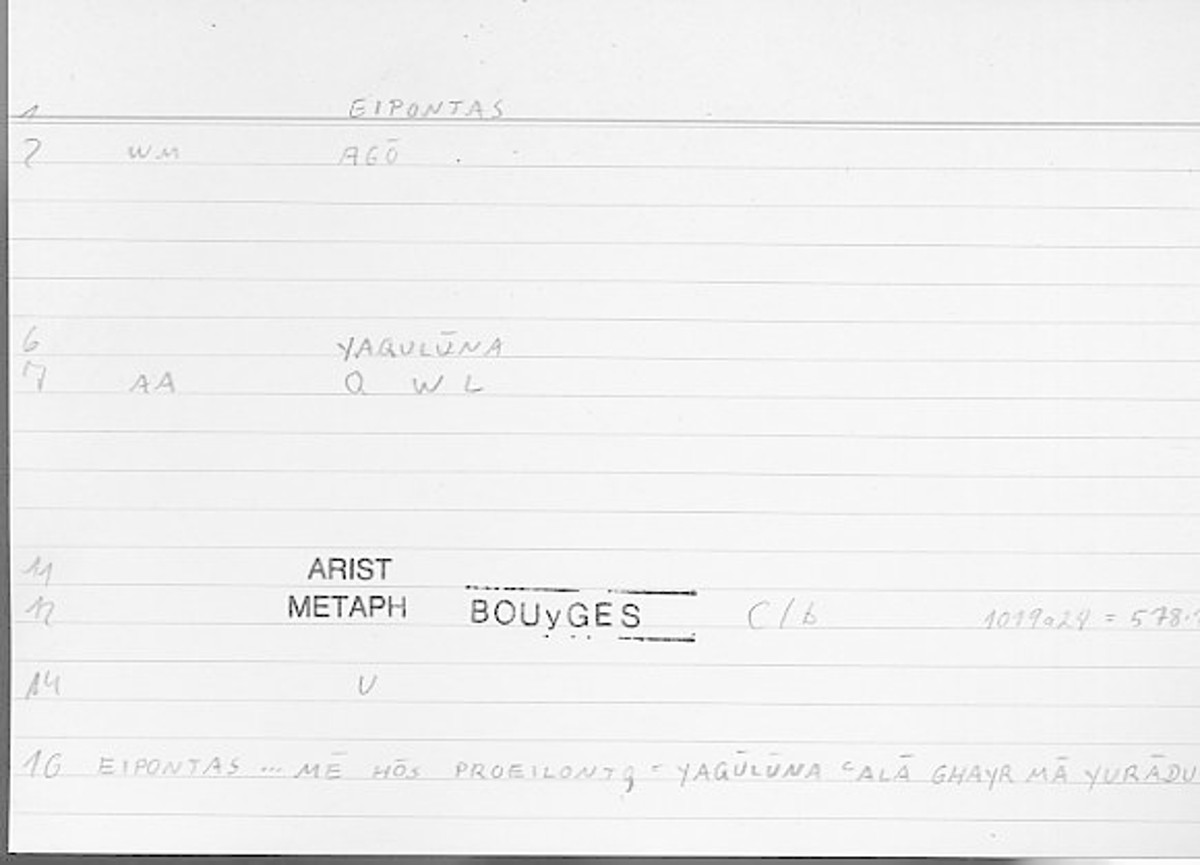 1 EIPONTAS
2 WM AGŌ
6 YAQULŪNA
7 AA Q W L
11 ARIST
12 METAPH BOUyGES C/b 1019a24 = 578.
14 V
16 EIPONTAS ... MĒ HŌS = YAQŪLŪNA ᶜALĀ GHAYR MĀ YURĀDU